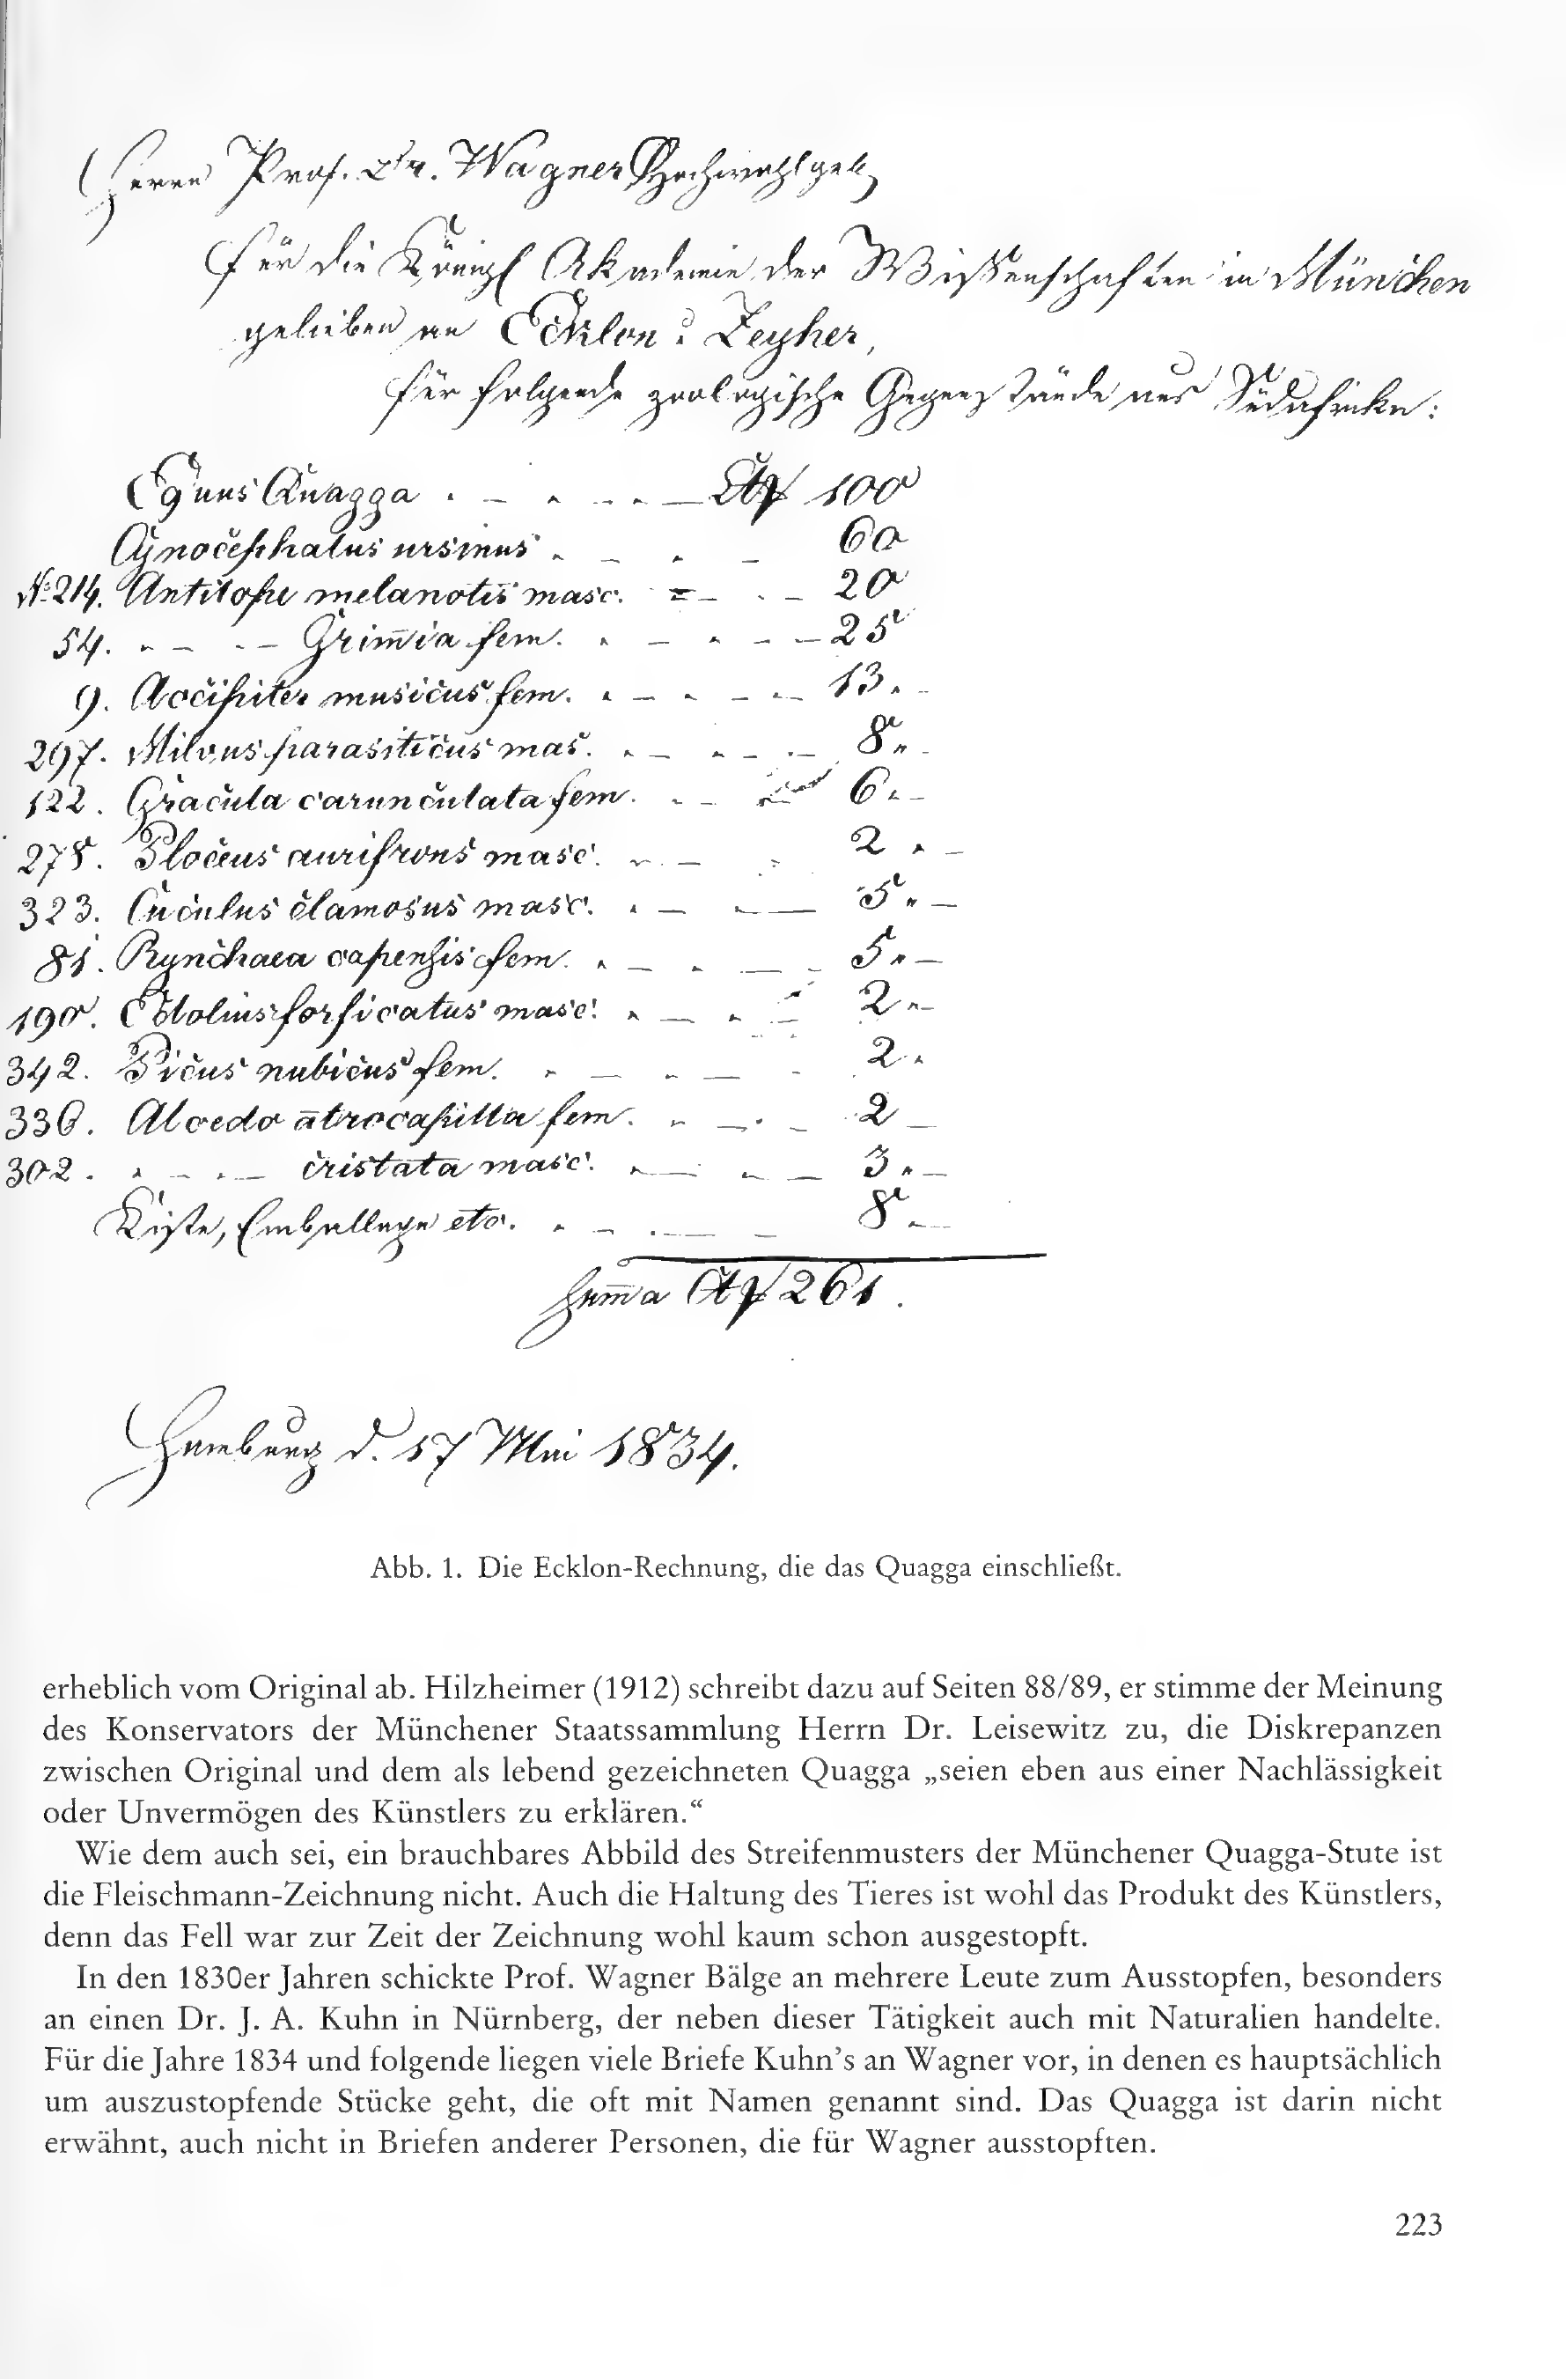 Herrn Prof. Dr. Wagner Hochwohlgeb.
für die Königl Akademie der Wissenschaften in München
gelieben an Ecklon & Zeyher,
für folgende zoologische Gegenstände aus Südafrika:
Equus Quagga . – . . . – 100
Cynocephalus ursinus . – . – 60
No. 214. Antilope melanotis masc. = – . – 20
54. . – . – Grimmia fem. . – . – – 25
9. Accipiter musicus fem. . – . – . – 13. –
297. Milvus parasiticus mas. . – . – . – 8 „ –
122. Gracula carunculata fem. . – 6 . –
278. Ploceus aurifrons masc. . – . 2 . –
323. Cuculus clamosus masc. . – . – 5 „ –
81. Rynchaea capensis fem. . – . – – 5 „ –
190. Edolius forficatus masc. . – . – 2 „ –
342. Picus nubicus fem. . – . – – 2 .
336. Alcedo atrocapilla fem. . – . – 2 –
302. . – . – cristata masc. . – . – 3 „ –
Kiste, Emballage etc. . – . – – 8 . –
Summa 261.
Hamburg d. 17 Mai 1834.
Abb. 1. Die Ecklon-Rechnung, die das Quagga einschließt.
erheblich vom Original ab. Hilzheimer (1912) schreibt dazu auf Seiten 88/89, er stimme der Meinung
des Konservators der Münchener Staatssammlung Herrn Dr. Leisewitz zu, die Diskrepanzen
zwischen Original und dem als lebend gezeichneten Quagga „seien eben aus einer Nachlässigkeit
oder Unvermögen des Künstlers zu erklären.“
Wie dem auch sei, ein brauchbares Abbild des Streifenmusters der Münchener Quagga-Stute ist
die Fleischmann-Zeichnung nicht. Auch die Haltung des Tieres ist wohl das Produkt des Künstlers,
denn das Fell war zur Zeit der Zeichnung wohl kaum schon ausgestopft.
In den 1830er Jahren schickte Prof. Wagner Bälge an mehrere Leute zum Ausstopfen, besonders
an einen Dr. J. A. Kuhn in Nürnberg, der neben dieser Tätigkeit auch mit Naturalien handelte.
Für die Jahre 1834 und folgende liegen viele Briefe Kuhn’s an Wagner vor, in denen es hauptsächlich
um auszustopfende Stücke geht, die oft mit Namen genannt sind. Das Quagga ist darin nicht
erwähnt, auch nicht in Briefen anderer Personen, die für Wagner ausstopften.
223